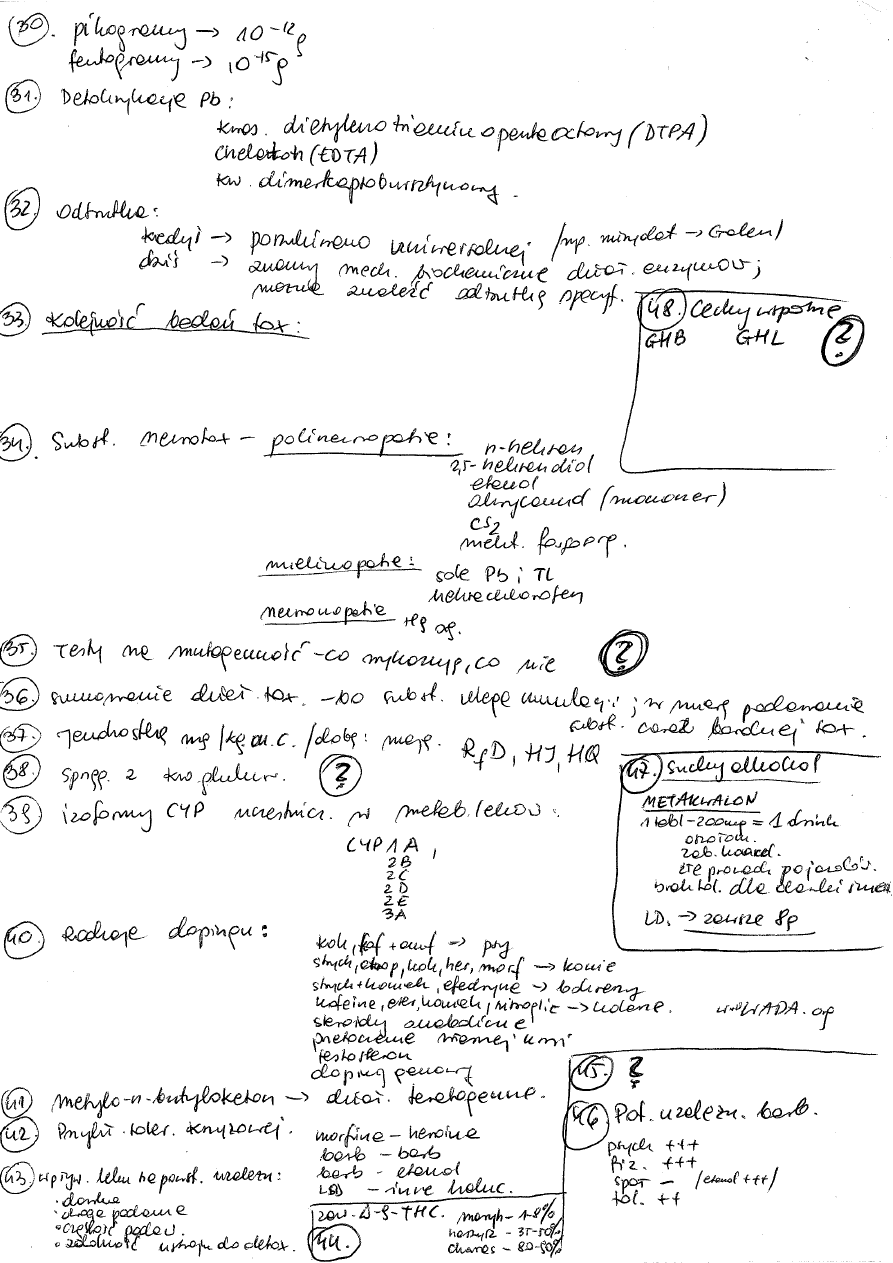 30. pikogramy → 10⁻¹² g
femtogramy → 10⁻¹⁵ g
31. Detoksykacja Pb:
kwas. dietylenotriaminopentaoctowy (DTPA)
Chelaton (EDTA)
kw. dimerkaptobursztynowy.
32. odtrutka:
kiedyś → poszukiwano uniwersalnej /np. mirydat → Galen/
dziś → znamy mech. biochemiczne dział. enzymów;
można znaleźć odtrutkę specyf.
33. Kolejność badań tox:
48. Cechy wspólne
GHB GHL ?
34. Subst. neurotox – polineuropatie:
n-heksan
2,5-heksandiol
etanol
akrylamid (monomer)
CS₂
mielinopatie:
sole Pb i TL
heksachlorofen
neuronopatie
Hg og.
35. Testy na mutagenność - co wykazują, co nie ?
36. sumowanie dział. tox. - bo subst. ulega kumulacji; w miarę podawania
subst. coraz bardziej tox.
37. Jednostkę mg/kg m.c./dobę: mają. RfD, HI, HQ
38. Sprzęg. z kw. glukur. ?
39. izoformy CYP uczestnicz. w metab. leków:
CYP 1A,
2B
2C
2D
2E
3A
47. Suchy alkohol
METAKWALON
1 tabl - 200mg = 1 drink
zab. koord.
złe prowadz. pojazdów.
LD. → zawsze 8g
40. Rodzaje dopingu:
kok, kof + amf → psy
strych, atrop, kok, her, morf → konie
strych + koniak, efedryna → bokserzy
kofeina, eter, koniak, nitroglic → kolarze.
www.WADA.org
steroidy anaboliczne
przetaczanie własnej krwi
testosteron
doping genowy
41. metylo-n-butyloketon → dział. teratogenne.
42. Przykł. toler. krzyżowej.
morfina – heroina
barb – barb
barb – etanol
LSD – inne haluc.
43. wpływ. leku na powst. uzależn:
• dawka
• droga podania
• częstość podaw.
• zdolność ustroju do detox.
44.
zaw. Δ-9-THC.
maryh - 1-8%
haszysz - 35-50%
charas - 80-90%
45. ?
46. Pot. uzależn. barb.
psych +++
fiz. +++
spo – /etanol +++/
tol. ++